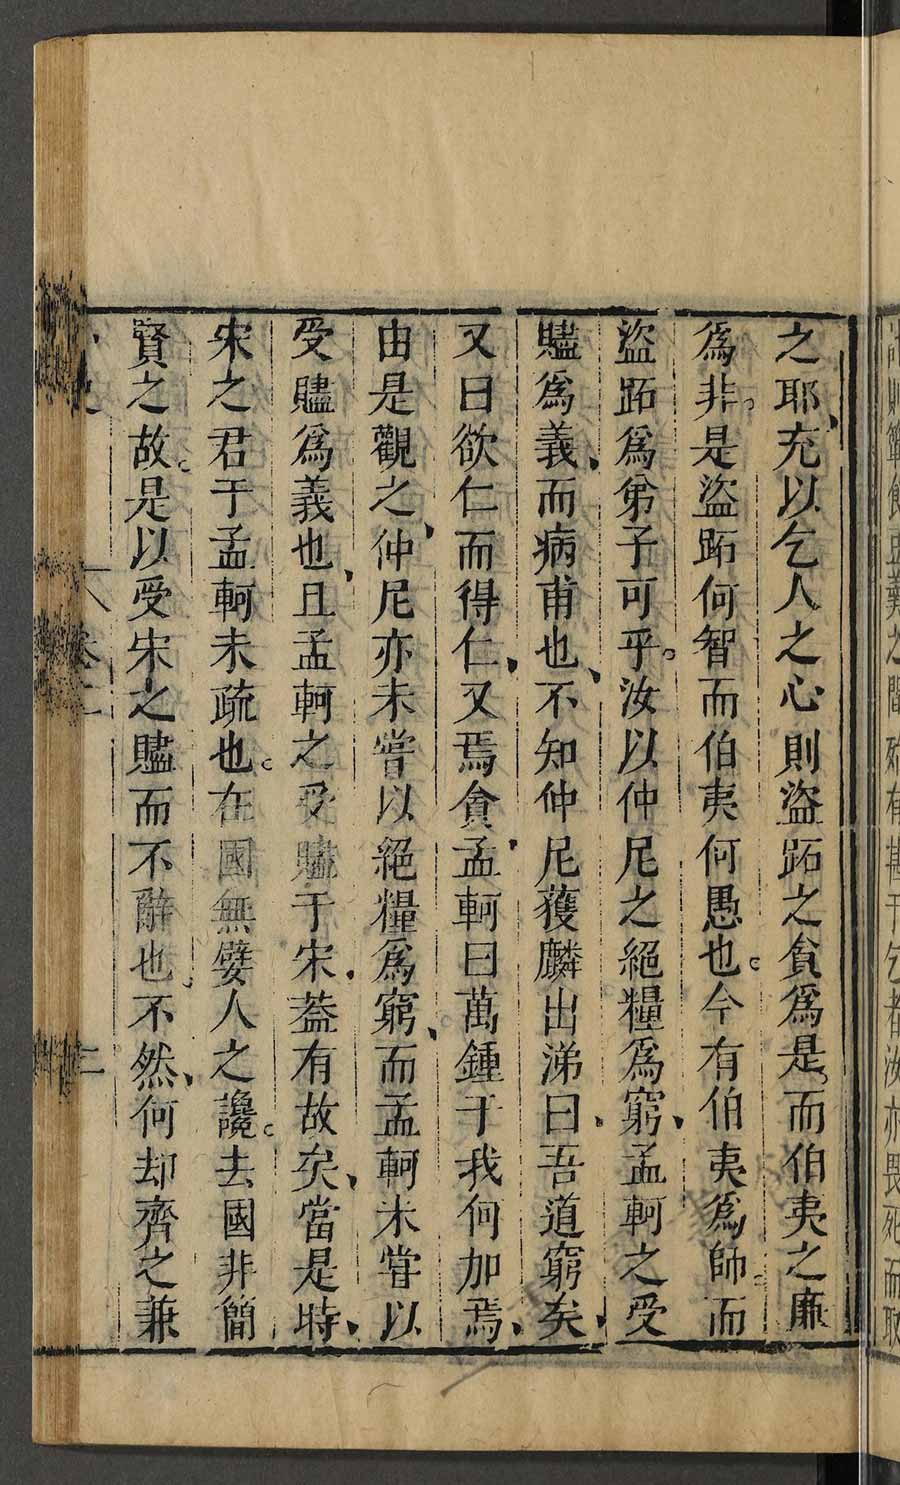 之耶充以乞人之心則盜跖之貪爲是而伯夷之廉
爲非是盜跖何智而伯夷何愚也今有伯夷爲師而
盜跖爲弟子可乎汝以仲尼之絕糧爲窮孟軻之受
贐爲義而病甫也不知仲尼獲麟出涕曰吾道窮矣
又曰欲仁而得仁又焉貪孟軻曰萬鍾于我何加焉
由是觀之仲尼亦未嘗以絕糧爲窮而孟軻未嘗以
受贐爲義也且孟軻之受贐于宋葢有故矣當是時
宋之君于孟軻未疏也在國無嬖人之讒去國非簡
賢之故是以受宋之贐而不辭也不然何却齊之兼
卷二
二